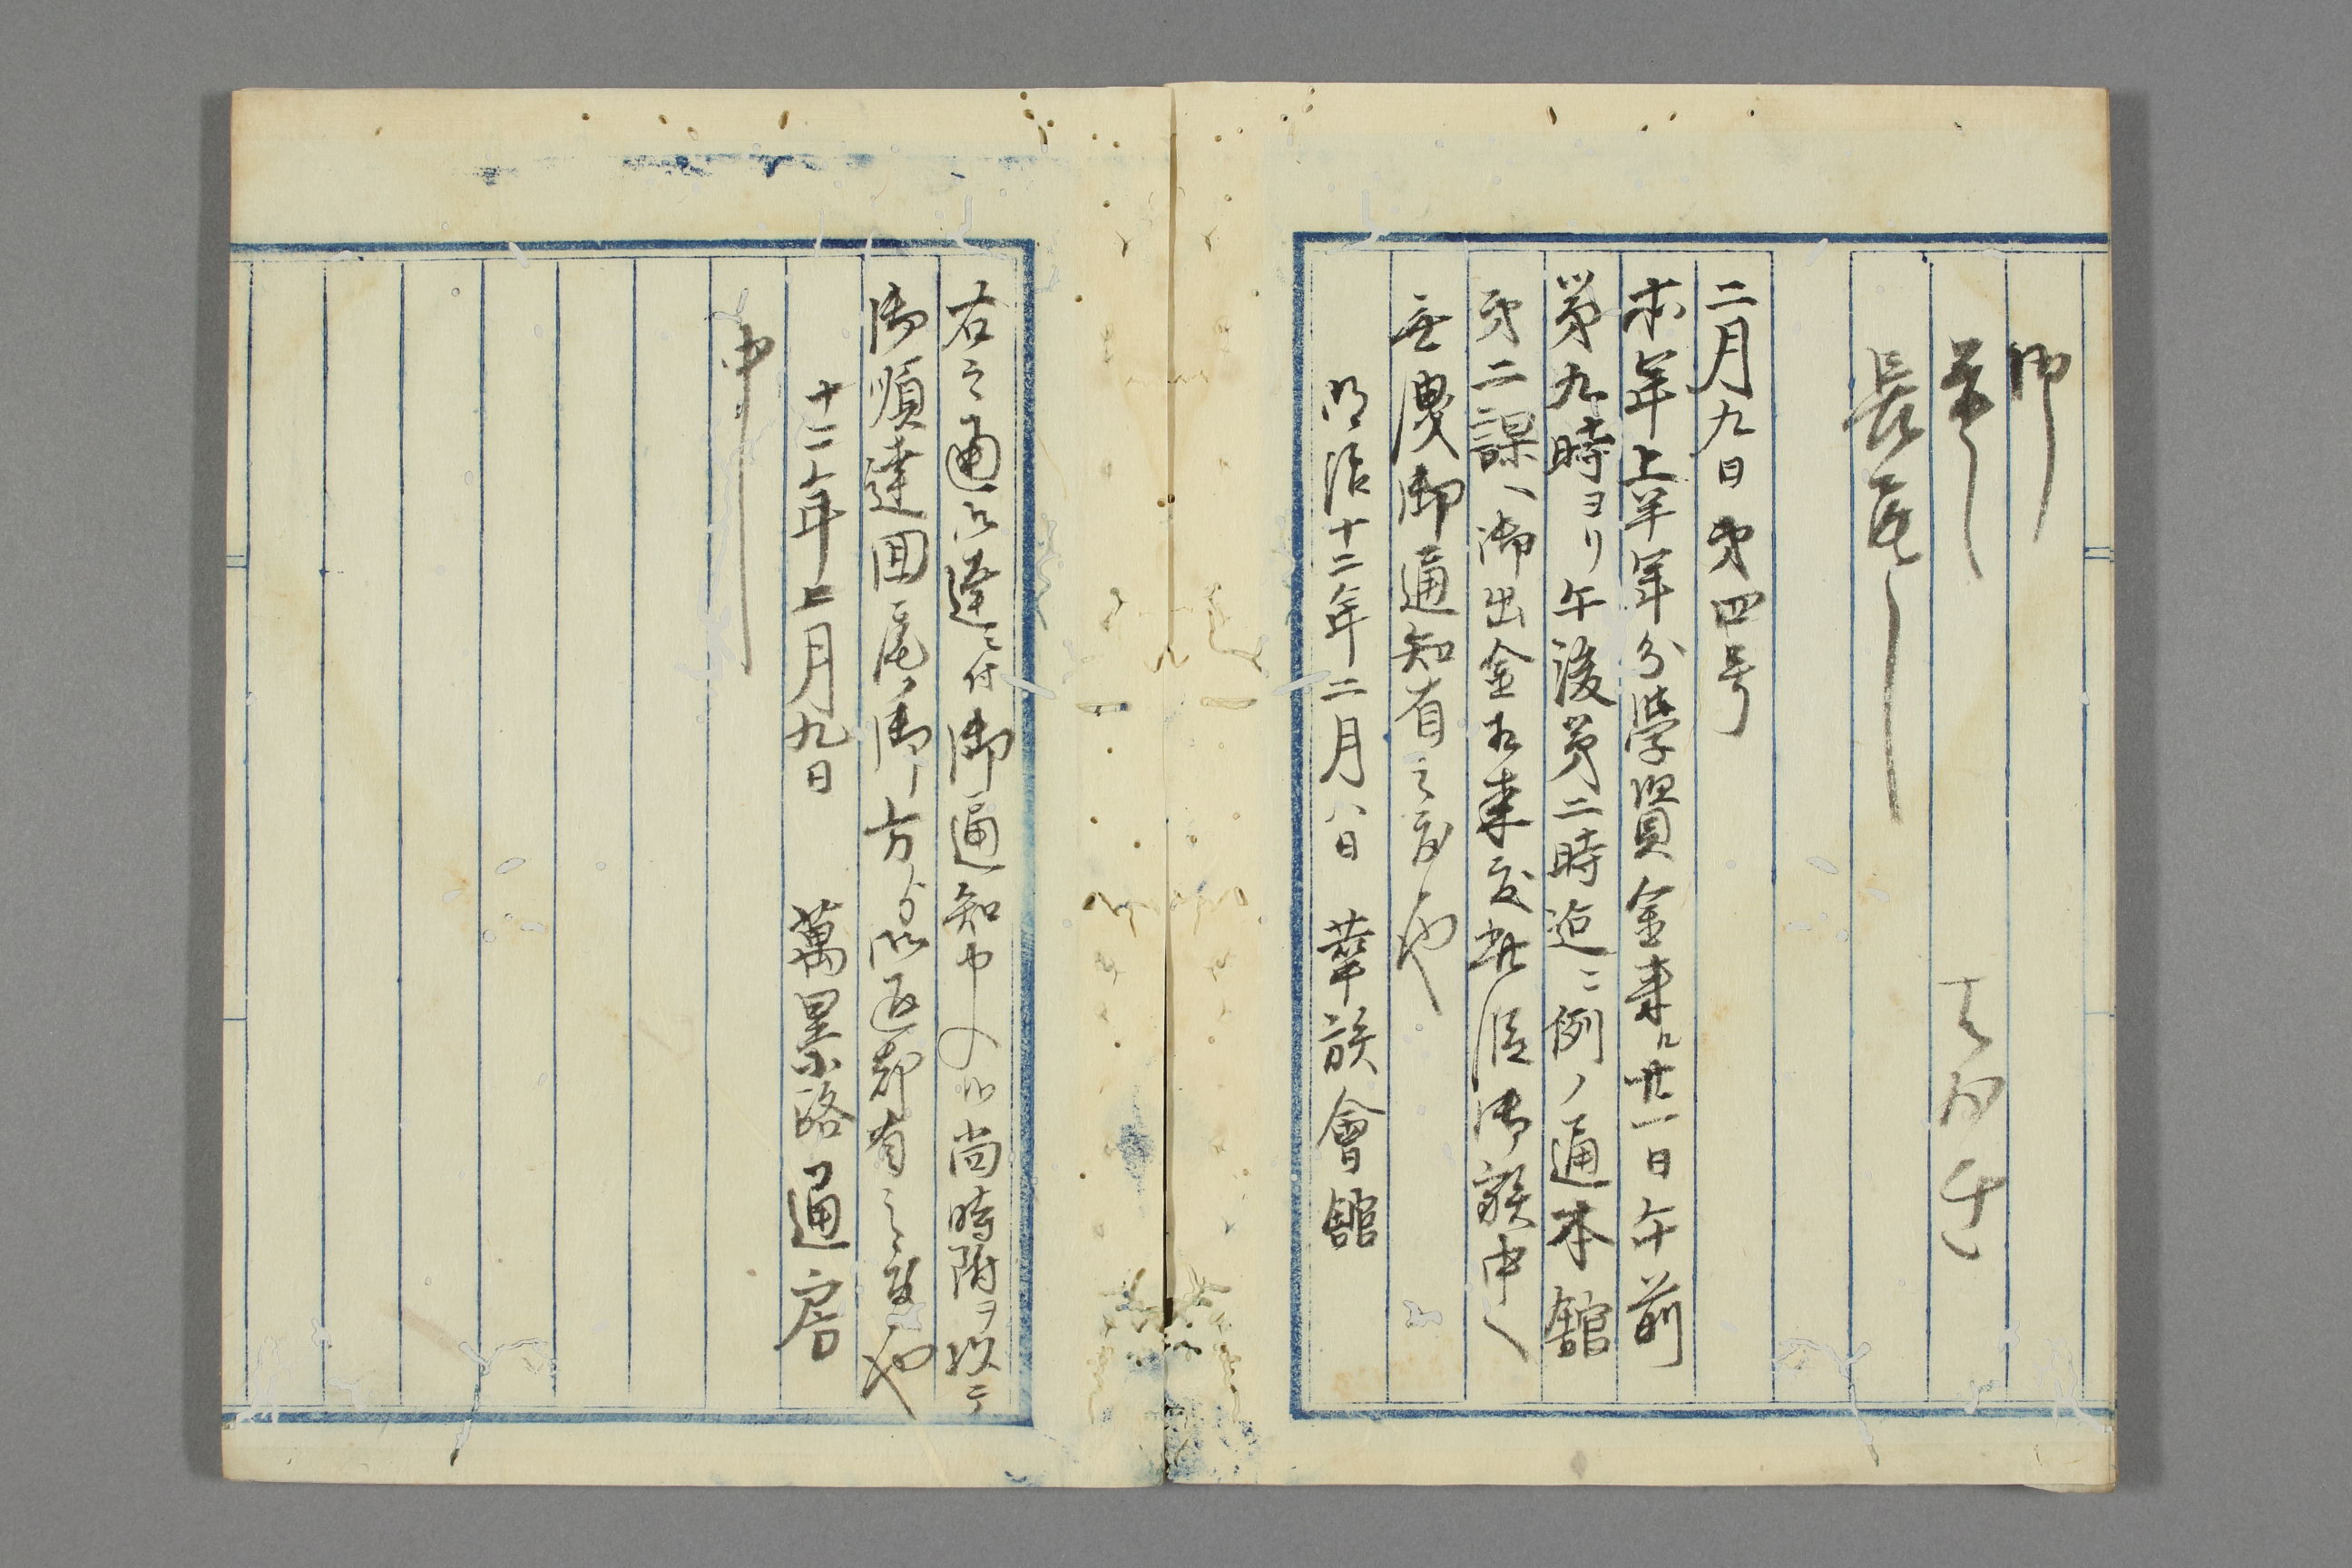 御
長谷
二月九日 第四号
本年上半年分學資金来ル廿一日午前
第九時ヨリ午後第二時迄ニ例ノ通本舘
第二課ヘ御出金相来度此段御族中ヘ
無洩御通知有之度候也
明治十二年二月八日 華族會舘
右之通御達ニ付御通知申入候尚時附ヲ以テ
御順達回尾ノ御方ゟ御返却有之度候也
十二年二月九日 萬里小路通房
中